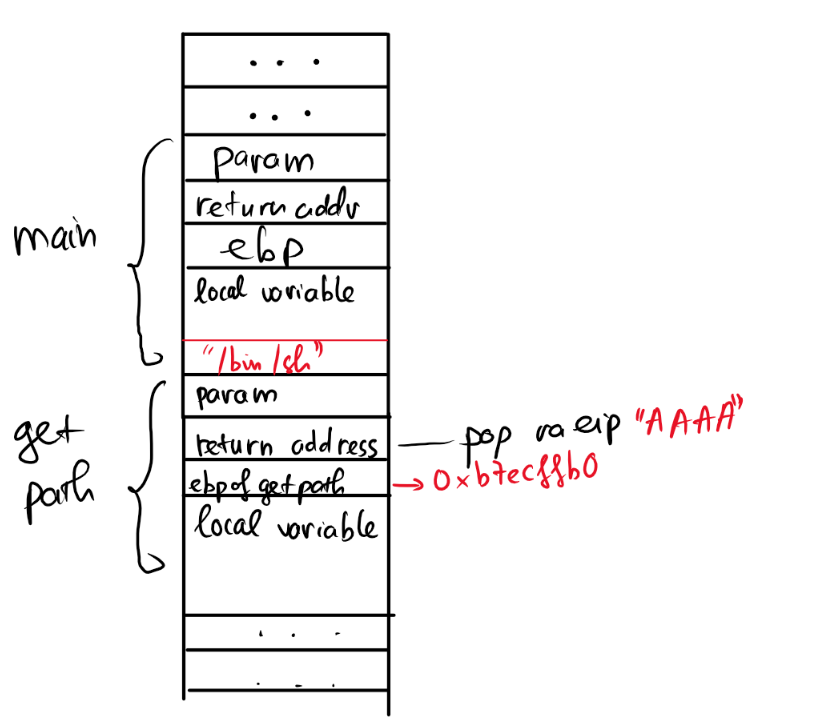 . . .
. . .
param
return addr
main
ebp
local variable
"/bin/sh"
param
get
path
return address
pop ra eip "AAAA"
ebp of getpath
→ 0xb7ecffb0
local variable
. . .
. . .